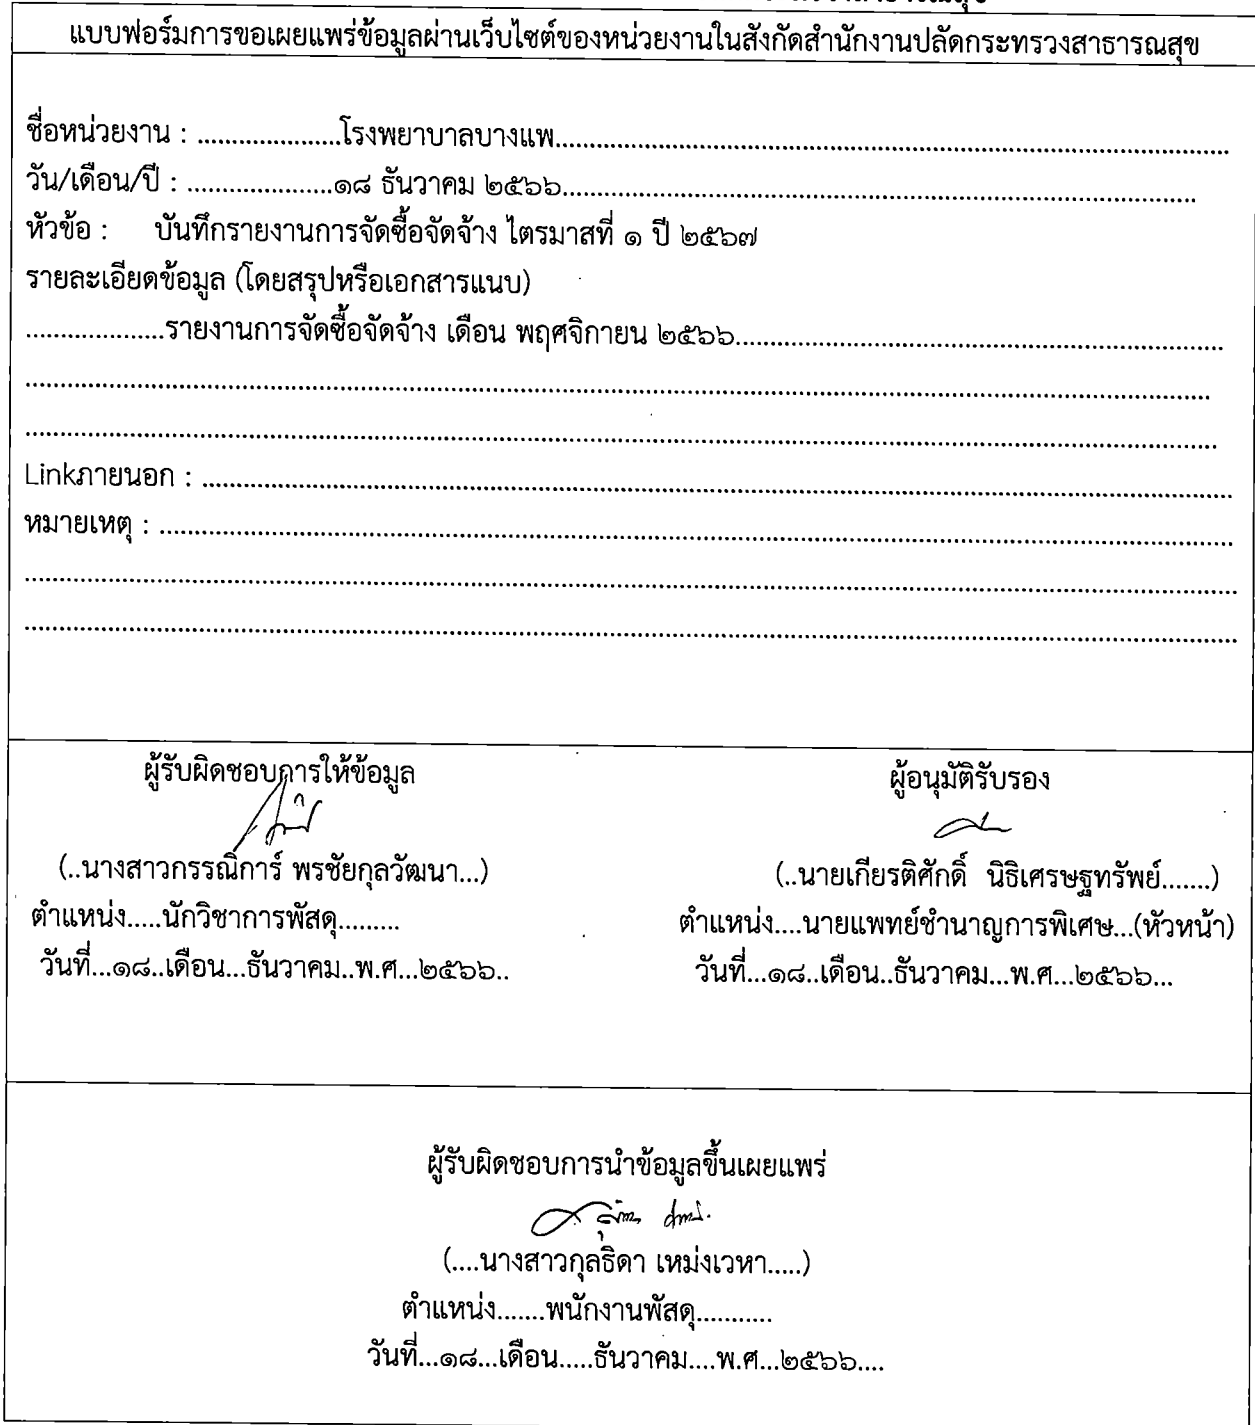 แบบฟอร์มการขอเผยแพร่ข้อมูลผ่านเว็บไซต์ของหน่วยงานในสังกัดสำนักงานปลัดกระทรวงสาธารณสุข
ชื่อหน่วยงาน : .....................โรงพยาบาลบางแพ.....................
วัน/เดือน/ปี : .....................๑๘ ธันวาคม ๒๕๖๖.....................
หัวข้อ : บันทึกรายงานการจัดซื้อจัดจ้าง ไตรมาสที่ ๑ ปี ๒๕๖๗
รายละเอียดข้อมูล (โดยสรุปหรือเอกสารแนบ)
....................รายงานการจัดซื้อจัดจ้าง เดือน พฤศจิกายน ๒๕๖๖....................
Linkภายนอก : ....................
หมายเหตุ : ....................
ผู้รับผิดชอบการให้ข้อมูล
(..นางสาวกรรณิการ์ พรชัยกุลวัฒนา...)
ตำแหน่ง.....นักวิชาการพัสดุ.........
วันที่...๑๘..เดือน...ธันวาคม..พ.ศ...๒๕๖๖..
ผู้อนุมัติรับรอง
(..นายเกียรติศักดิ์ นิธิเศรษฐทรัพย์.......)
ตำแหน่ง....นายแพทย์ชำนาญการพิเศษ...(หัวหน้า)
วันที่...๑๘..เดือน..ธันวาคม...พ.ศ...๒๕๖๖...
ผู้รับผิดชอบการนำข้อมูลขึ้นเผยแพร่
(....นางสาวกุลธิดา เหม่งเวหา.....)
ตำแหน่ง.......พนักงานพัสดุ...........
วันที่...๑๘...เดือน.....ธันวาคม....พ.ศ...๒๕๖๖....